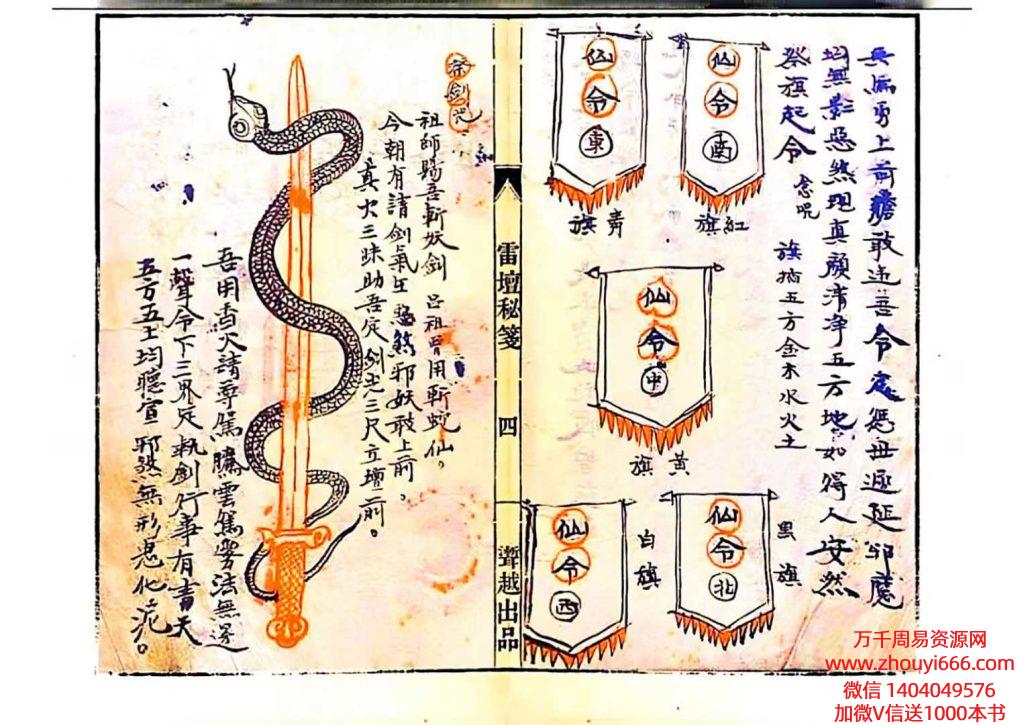 兵馬勇上前誰敢違吾令處恁毋遲延邪魔
均無影惡煞現真顏清净五方地如得人安然
祭旗起令 念咒 旗插五方金木水火土
仙令南
紅旗
仙令東
青旗
仙令中
黃旗
仙令北
黑旗
仙令西
白旗
雷壇秘箋
四
聾越出品
祭劍咒
祖師賜吾斬妖劍 呂祖曾用斬蛇仙。
今朝有請劍氣生 惡煞邪妖敢上前。
真火三昧助吾定 劍走三尺立壇前。
吾用香火請尊駕 騰雲駕雾法無邊
一聲令下三界定 執劍行事有青天
五方五土均聽宣 邪煞無形惡化泥。
万千周易资源网
www.zhouyi666.com
微信 1404049576
加微V信送1000本书